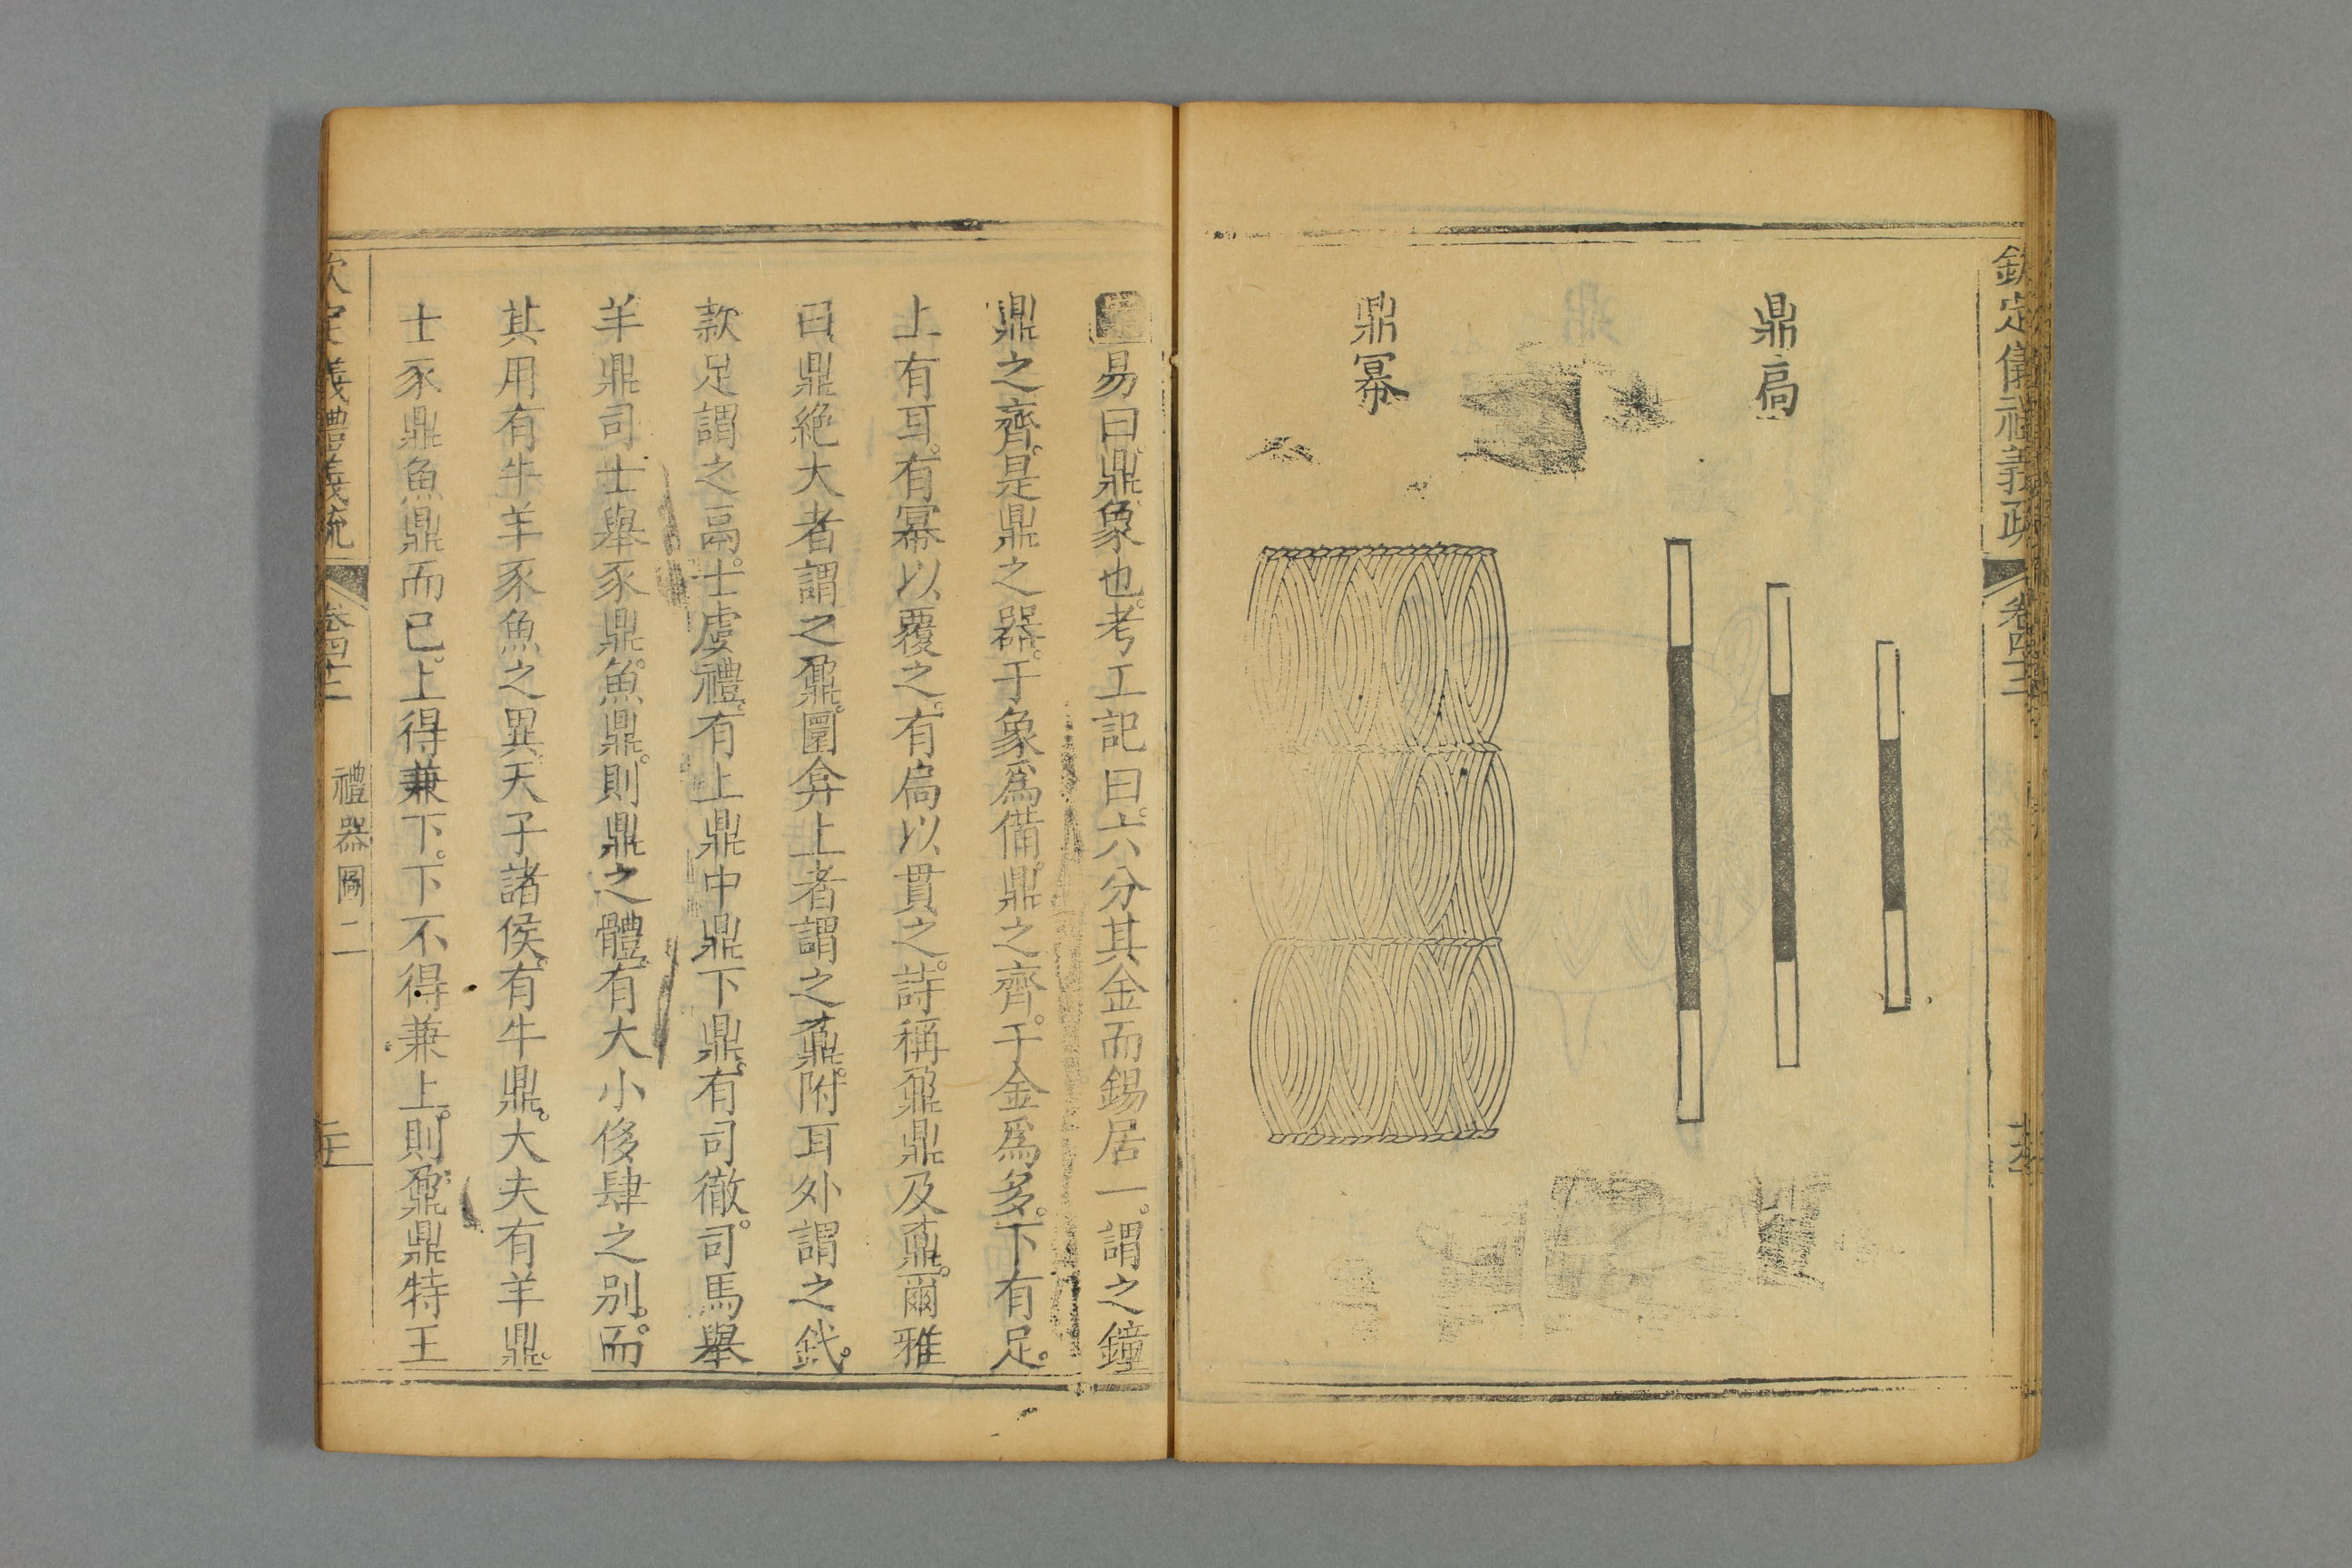 欽定儀禮義疏 卷四十二
鼎扃
鼎冪
易曰。鼎象也。考工記曰。六分其金而錫居一。謂之鐘
鼎之齊。是鼎之器。于象爲備。鼎之齊。于金爲多。下有足。
上有耳。有冪以覆之。有扃以貫之。詩稱鼐鼎及鼒。爾雅
曰鼎絶大者謂之鼐。圜弇上者謂之鼒。附耳外謂之釴。
款足謂之鬲。士虞禮。有上鼎中鼎下鼎。有司徹。司馬舉
羊鼎司士舉豕鼎。魚鼎。則鼎之體。有大小侈肆之别。而
其用有牛羊豕魚之異天子諸侯。有牛鼎。大夫有羊鼎。
士豕鼎魚鼎而已。上得兼下。下不得兼上。則鼐鼎特王
欽定儀禮義疏 卷四十二 禮器圖二